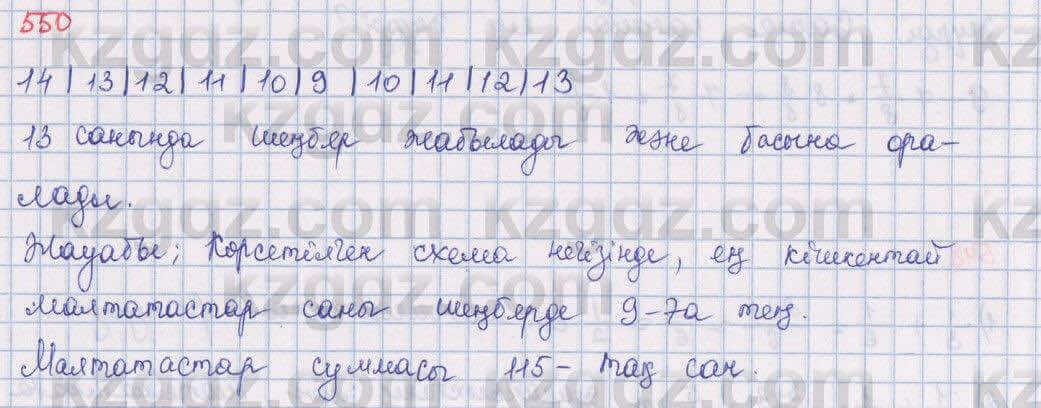 550
14 | 13 | 12 | 11 | 10 | 9 | 10 | 11 | 12 | 13
13 санында шеңбер жабылады және басына ора-
лады.
Жауабы; Көрсетілген схема негізінде, ең кішкентай
малтатастар саны шеңберде 9-ға тең.
Малтатастар суммасы 115 - тақ сан.
kzgdz.com